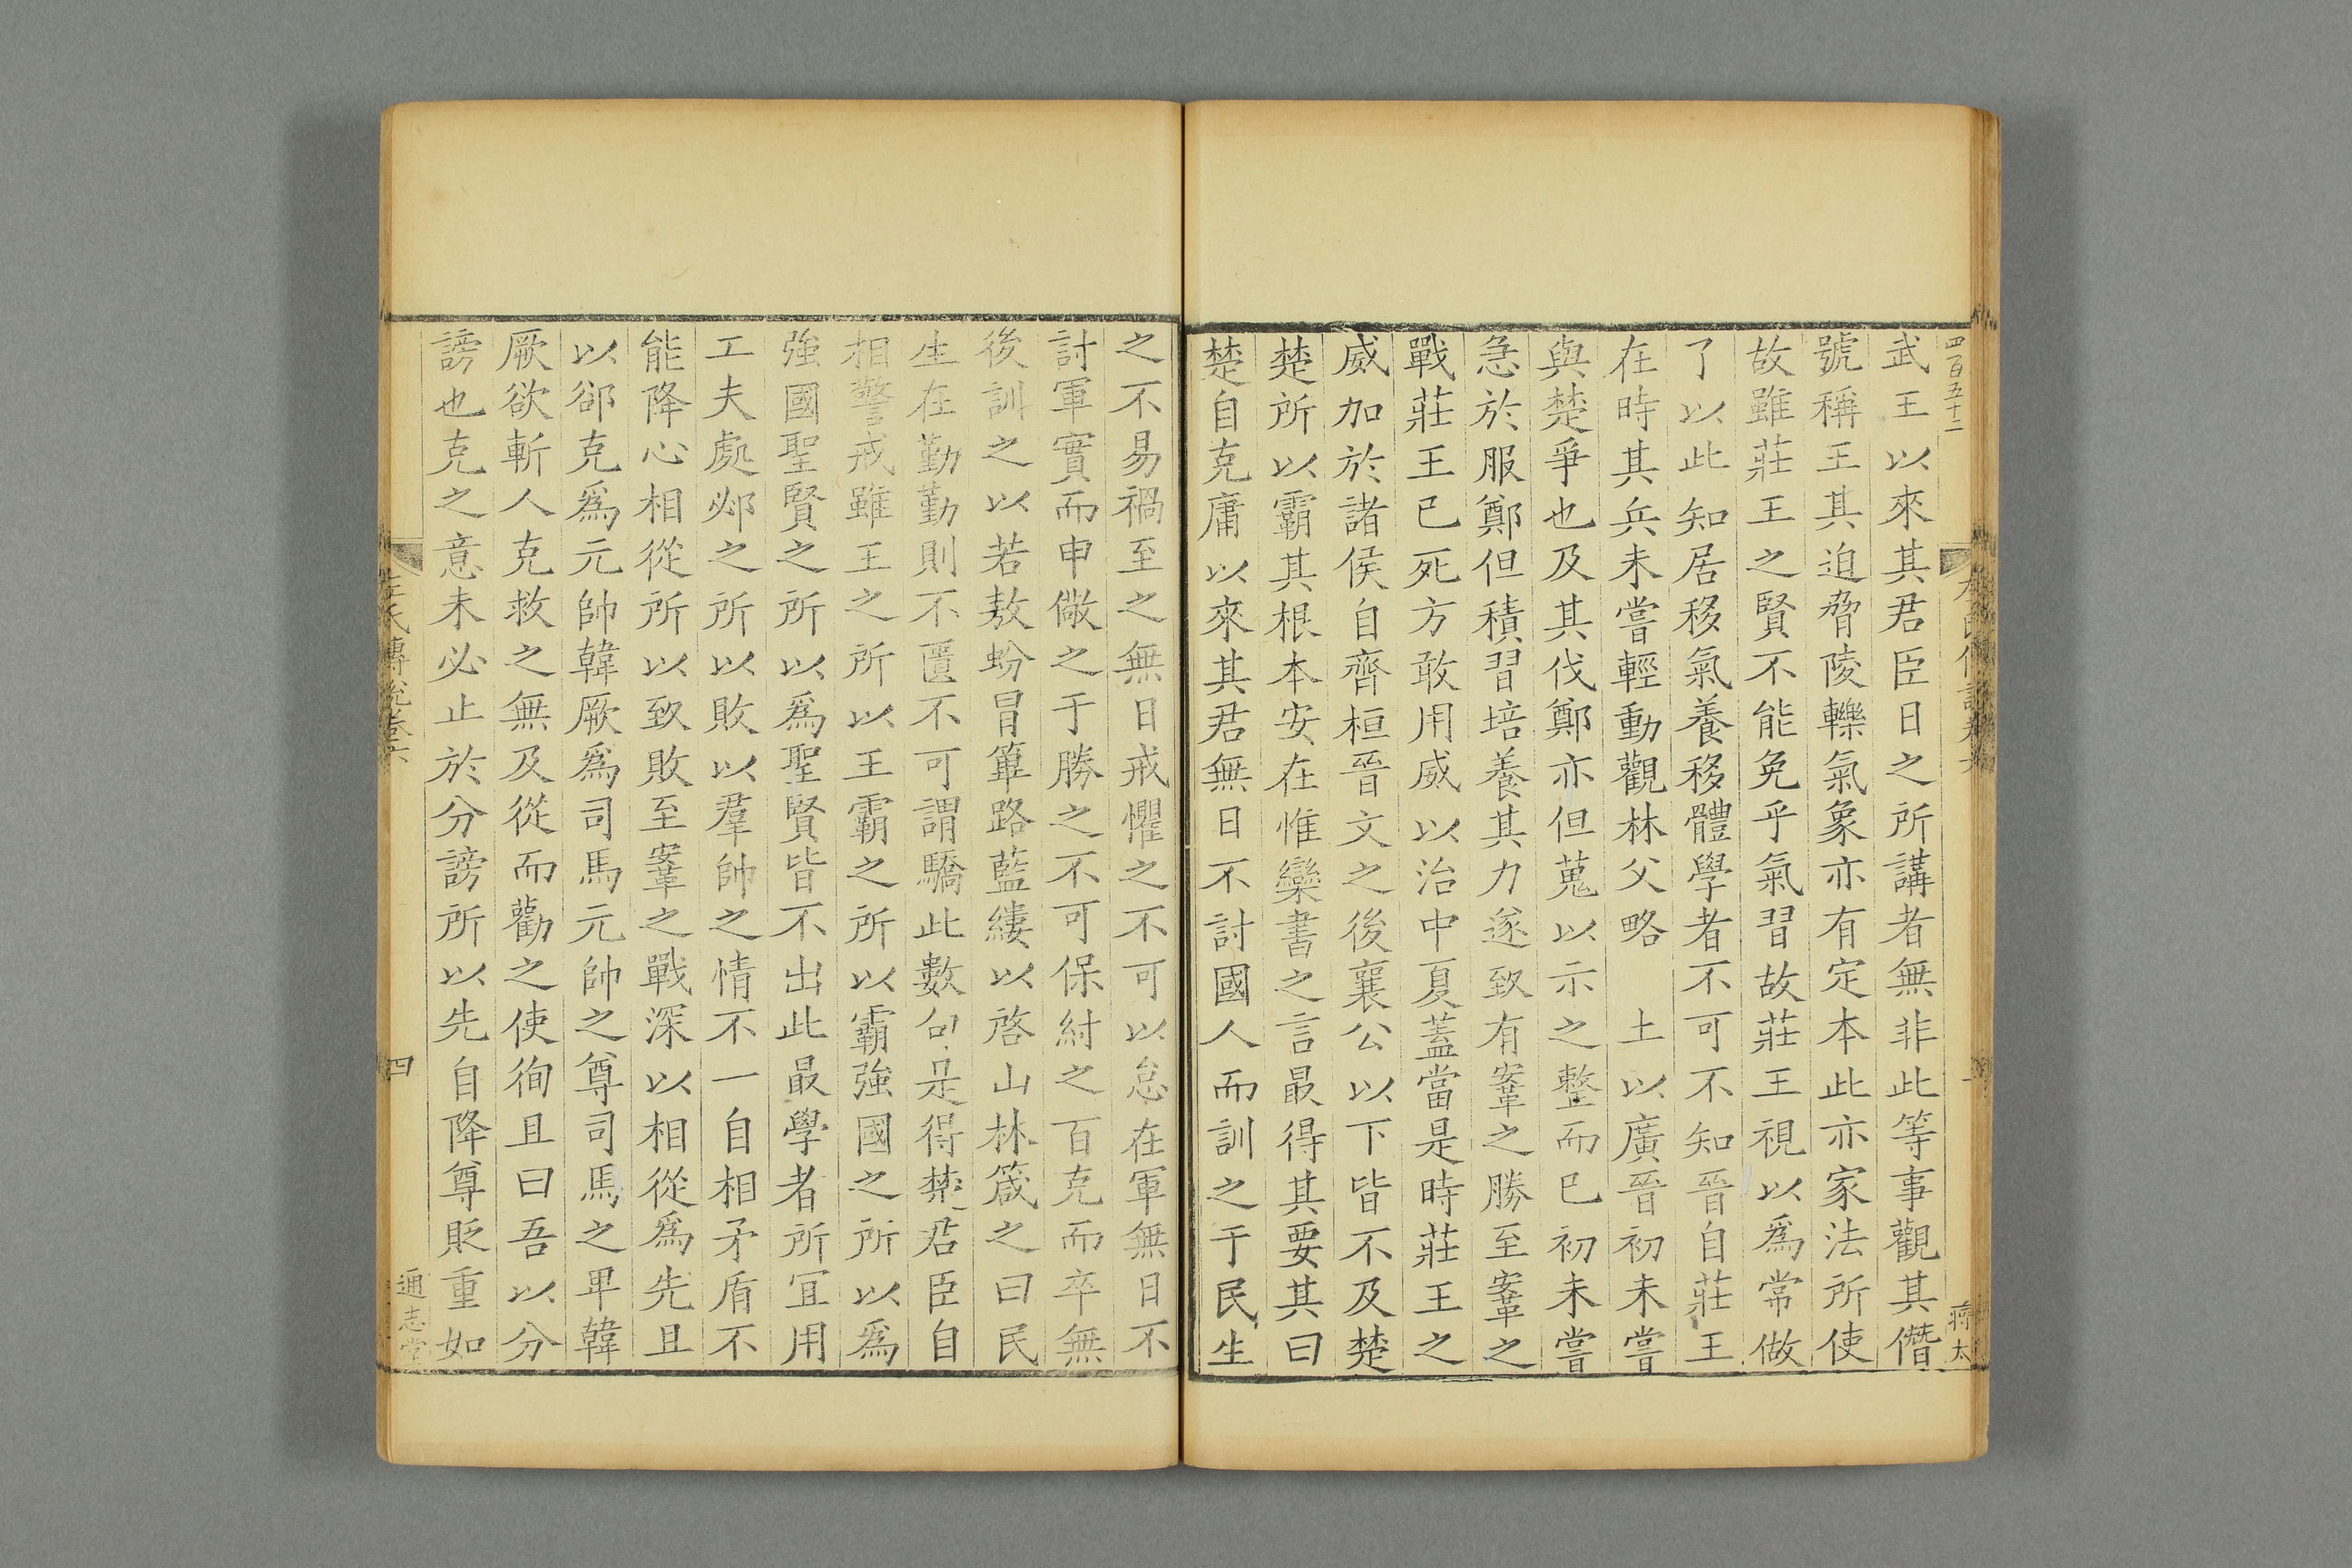 四百五十二
武王以來其君臣日之所講者無非此等事觀其僭
號稱王其迫脅陵轢氣象亦有定本此亦家法所使
故雖莊王之賢不能免乎氣習故莊王視以爲常做
了以此知居移氣養移體學者不可不知晉自莊王
在時其兵未嘗輕動觀林父略　土以廣晉初未嘗
與楚爭也及其伐鄭亦但蒐以示之整而已初未嘗
急於服鄭但積習培養其力遂致有鞌之勝至鞌之
戰莊王已死方敢用威以治中夏蓋當是時莊王之
威加於諸侯自齊桓晉文之後襄公以下皆不及楚
楚所以霸其根本安在惟欒書之言最得其要其曰
楚自克庸以來其君無日不討國人而訓之于民生
蔣太
之不易禍至之無日戒懼之不可以怠在軍無日不
討軍實而申儆之于勝之不可保紂之百克而卒無
後訓之以若敖蚡冒篳路藍縷以啓山林箴之曰民
生在勤勤則不匱不可謂驕此數句是得楚君臣自
相警戒雖王之所以王霸之所以霸強國之所以爲
強國聖賢之所以爲聖賢皆不出此最學者所宜用
工夫處邲之所以敗以羣帥之情不一自相矛盾不
能降心相從所以致敗至鞌之戰深以相從爲先且
以郤克爲元帥韓厥爲司馬元帥之尊司馬之卑韓
厥欲斬人克救之無及從而勸之使徇且曰吾以分
謗也克之意未必止於分謗所以先自降尊貶重如
左氏傳說卷六
四
通志堂